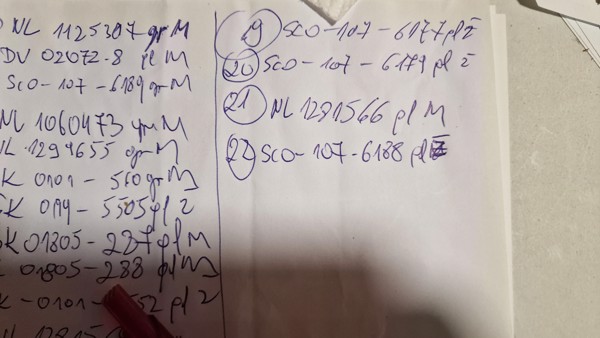 NL 1125307 gr M
DV 02072-8 M
SCO-107-6189 gr M
NL 1060473 gr M
NL 1294655 gr M
K 0101 - 560 gr M
K 094 - 5505 pl Z
K 01805 - 287 pl M
01805 - 288 pl M
K - 0101 - 552 pl Z
19 SCO-107-6177 pl Z
20 SCO-107-6179 pl Z
21 NL 1281566 pl M
22 SCO-107-6188 pl